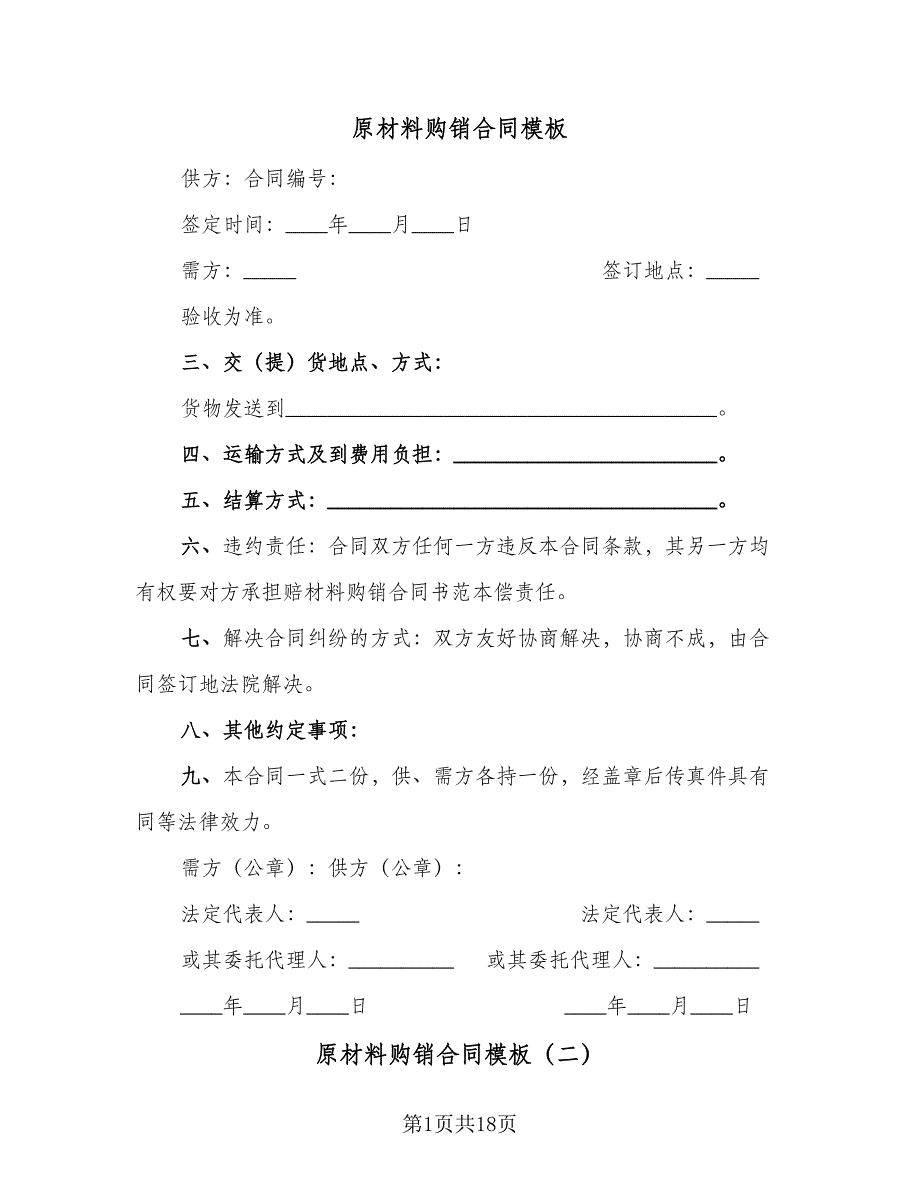 原材料购销合同模板
供方：合同编号：
签定时间：____年____月____日
需方：_____ 签订地点：_____
验收为准。
三、交（提）货地点、方式：
货物发送到_________________________________________。
四、运输方式及到费用负担：_________________________。
五、结算方式：_____________________________________。
六、违约责任：合同双方任何一方违反本合同条款，其另一方均
有权要对方承担赔材料购销合同书范本偿责任。
七、解决合同纠纷的方式：双方友好协商解决，协商不成，由合
同签订地法院解决。
八、其他约定事项：
九、本合同一式二份，供、需方各持一份，经盖章后传真件具有
同等法律效力。
需方（公章）：供方（公章）：
法定代表人：_____ 法定代表人：_____
或其委托代理人：__________ 或其委托代理人：__________
____年____月____日 ____年____月____日
原材料购销合同模板（二）
第1页共18页